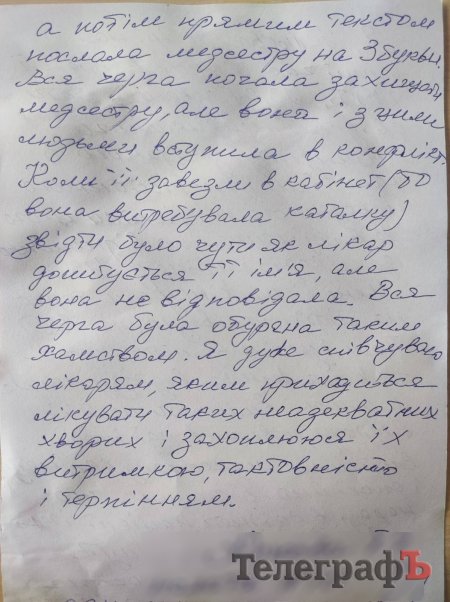 а потім прямим текстом
послала медсестру на 3 букви.
Вся черга почала захищати
медсестру, але вона і з цими
людьми вступила в конфлікт.
Коли її завезли в кабінет (бо
вона витребувала каталку)
звідти було чути як лікар
дошбується її ім'я, але
вона не відповідала. Вся
черга була обурена таким
хамством. Я дуже співчуваю
лікарям, яким приходиться
лікувати таких неадекватних
хворих і захоплююся їх
витримкою, тактовністю
і терпінням.
ТелеграфЪ